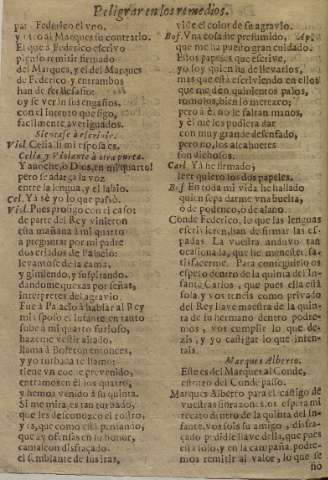 Peligrar en los remedios.
par Federico el vno,
y otro al Marques sin contarlo.
El que à Federico escrivo
pienso remitir firmado
del Marques, y el del Marques
de Federico, y entrambos
han de ser desafio:
oy se veràn sus engaños,
con el intento que sigo,
facilmente averiguados.
Sientase à escrivir.
Viol. Celia, si mi esposa es.
Celia, y Violante à otra puerta.
Y anoche, ò Dios, en mi quarto!
pero se adarga la voz
entre la lengua, y el labio.
Cel. Yà sè yo lo que passò.
Viol. Pues prodigo con el caso:
de parte del Rey vinieron
esta mañana à mi quarto
à preguntar por mi padre
dos criados de Palacio:
levantòse de la cama,
y gimiendo, y suspirando,
dandome quexas por señas,
interpretes del agravio.
Fuè à Palacio à hablar al Rey
mi esposo el Infante en tanto
sube à mi quarto furioso,
hazeme vestir
llama à Bofetòn entonces,
y yo turbada te llamo:
tiene vn coche prevenido,
entramos en èl los quatro,
y hemos venido à su quinta.
Si me mira, es tan turbado,
que le desconozco el rostro,
y es, que como està pensando,
que ay ofensas en su honor,
camaleon disfraçado
el semblante de sus iras,
viste el color de su agravio.
Bof. Vna cosa he presumido, Ap.
que me ha puesto gran cuidado.
Estos papeles que escrive,
yo soy quien ha de llevarlos,
mas que està escriviendo en ellos
que me dèn quinientos palos,
tomolos, bien lo merezco;
pero à èl no le faltan manos,
y èl me los pudiera dar
con muy grande desenfado,
pero no, los alcahuetes
son dichosos.
Carl. Yà he firmado;
leer quiero los dos papeles.
Bof. En toda mi vida he hallado
quien sepa darme vna buelta,
ò de pedenco, ò de alano.
Conde Federico, lo que las lenguas
escrivieren, han de firmar las espadas.
La vuestra anduvo tan
ocasionada, que he menester satisfacerme.
Para conseguirlo os
espero dentro de la quinta del Infante
Carlos, que pues ella està
sola, y vos teneis como privado
del Rey llave maestra de la quinta
de su hermano dentro podremos,
vos cumplir lo que dezis,
y yo castigar lo que intentais.
Marques Alberto.
Este es del Marques al Conde,
estotro del Conde passo.
Marques Alberto para el castigo de
vuestras os espera mi
dentro de la quinta del Infante.
vos sois su amigo,
pedidle llave della, que pues
està sola, y en la campaña, podremos
remitir al valor, lo que se
no